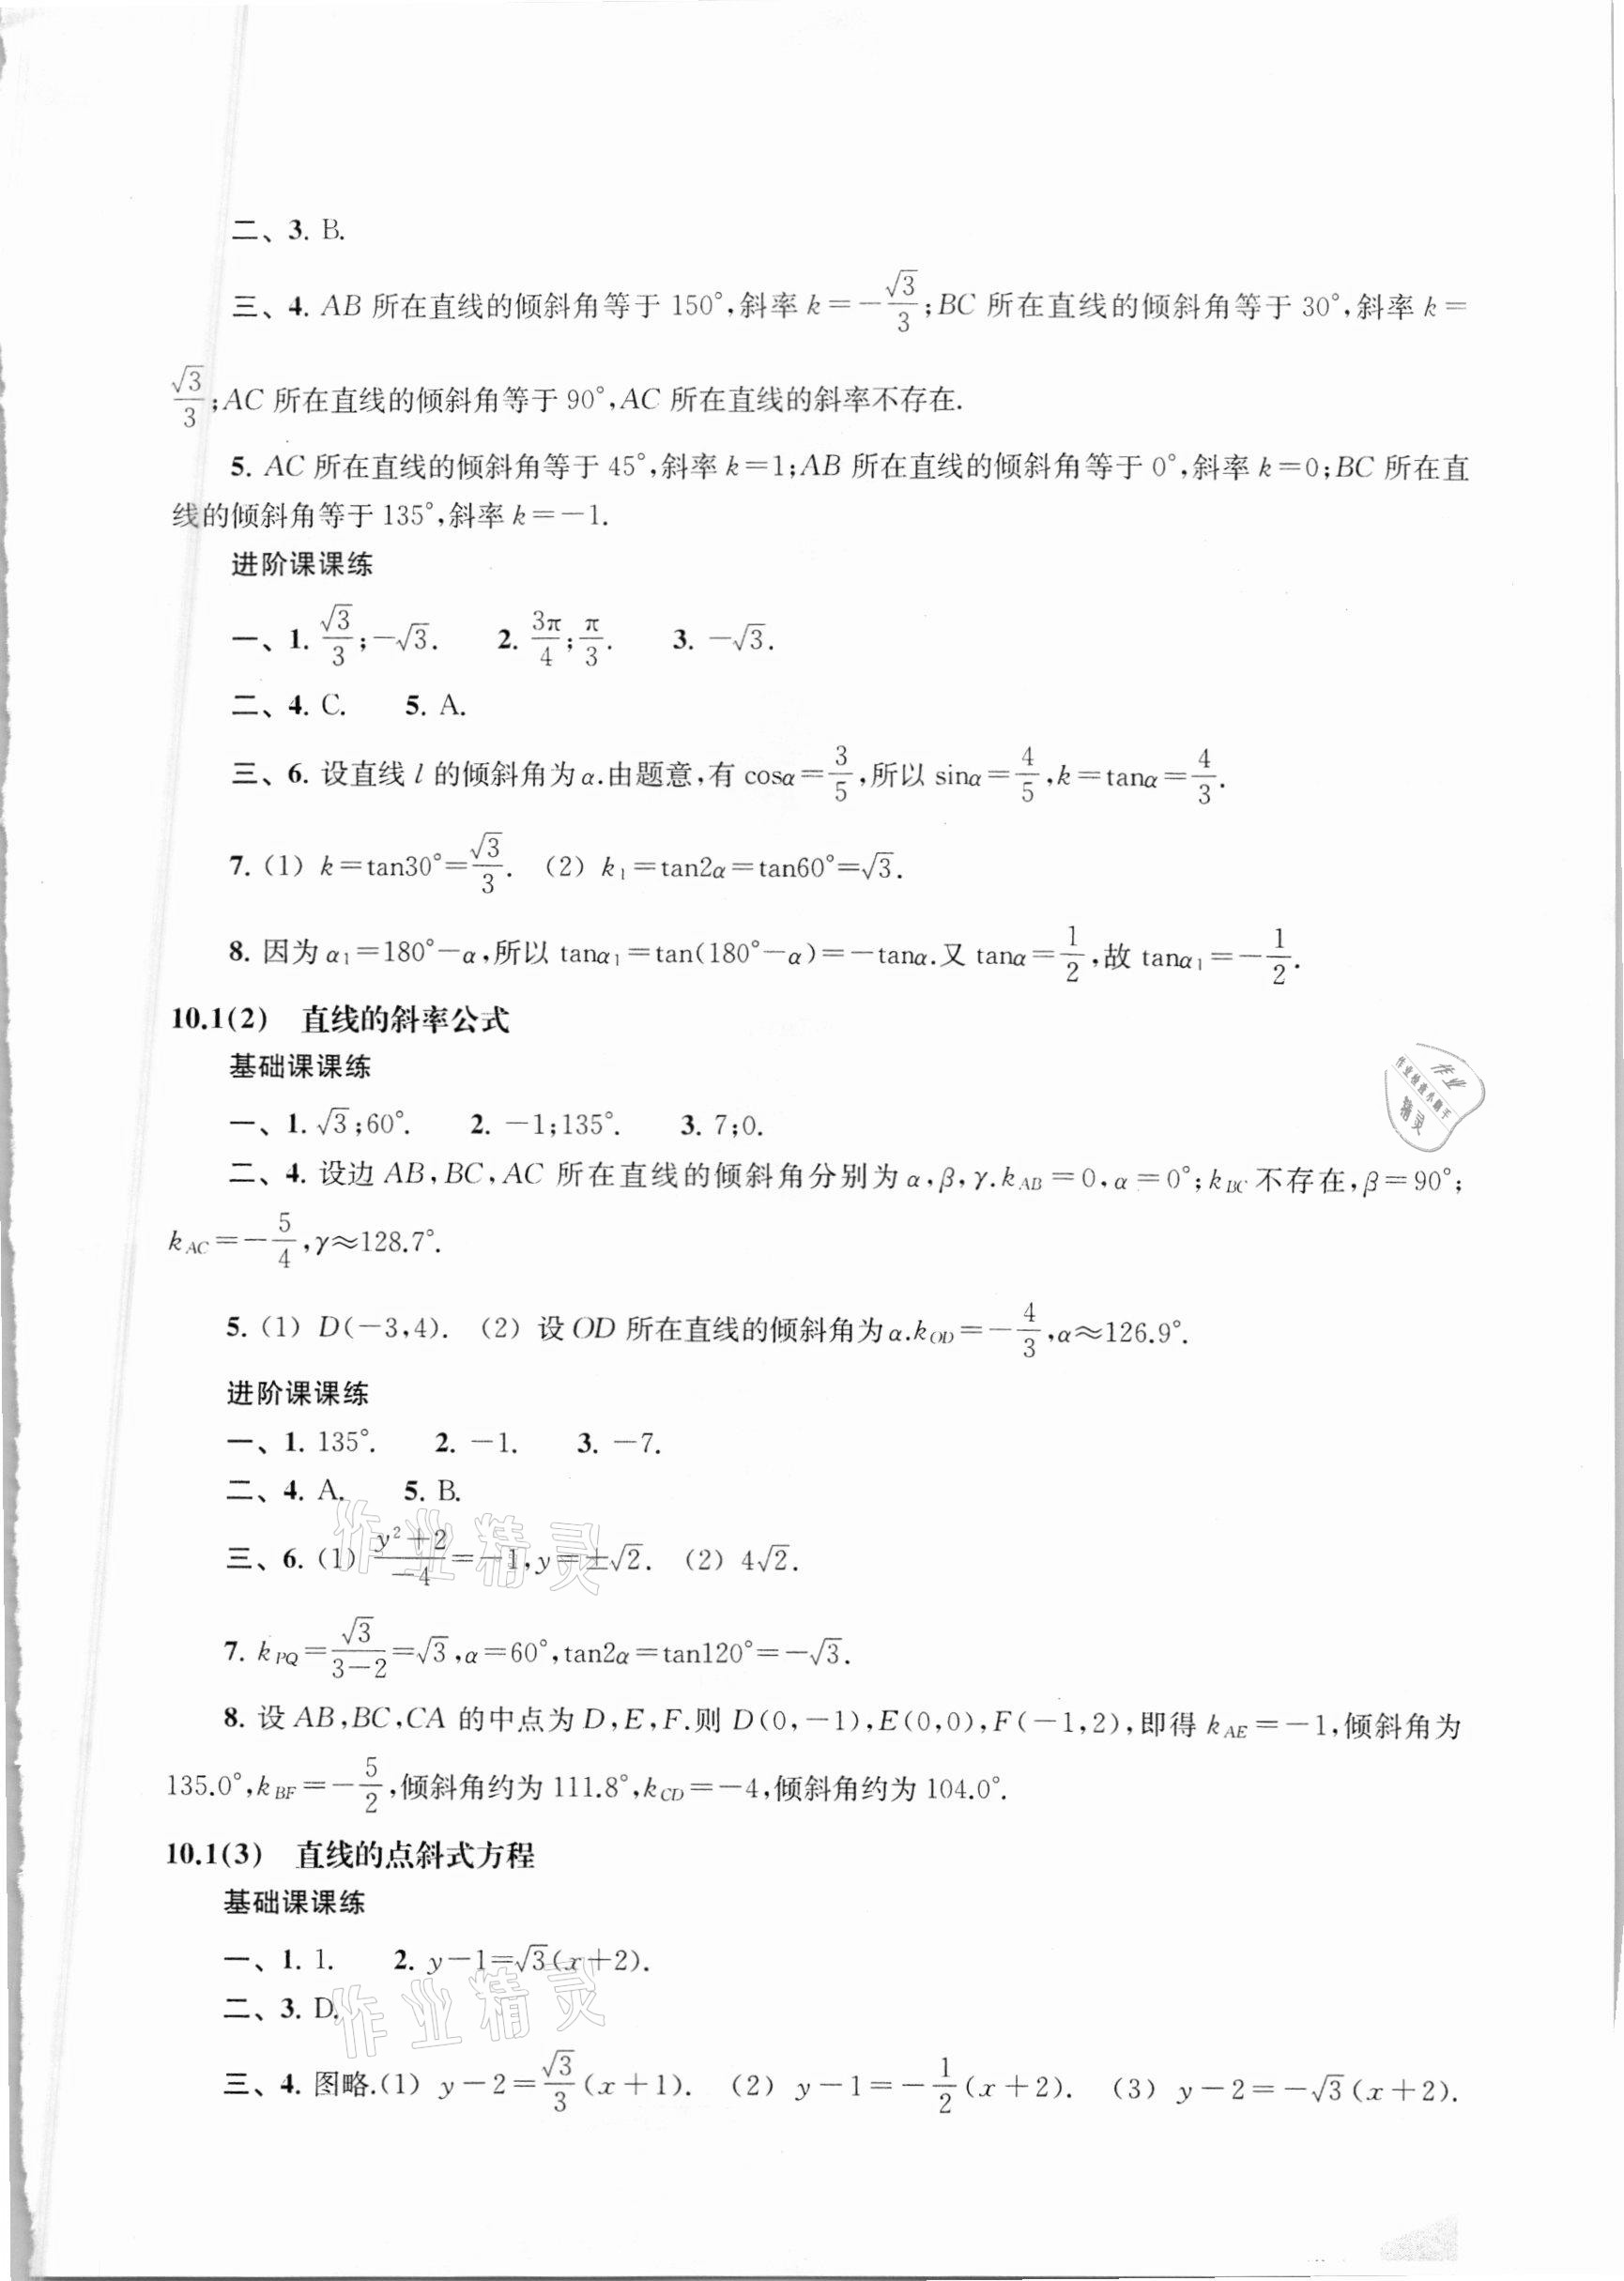 二、3. B.
三、4. AB 所在直线的倾斜角等于 150°,斜率 k=-√3/3;BC 所在直线的倾斜角等于 30°,斜率 k=
√3/3;AC 所在直线的倾斜角等于 90°,AC 所在直线的斜率不存在.
5. AC 所在直线的倾斜角等于 45°,斜率 k=1;AB 所在直线的倾斜角等于 0°,斜率 k=0;BC 所在直
线的倾斜角等于 135°,斜率 k=-1.
进阶课课练
一、1. √3/3;-√3. 2. 3π/4;π/3. 3. -√3.
二、4. C. 5. A.
三、6. 设直线 l 的倾斜角为 α.由题意,有 cosα=3/5,所以 sinα=4/5,k=tanα=4/3.
7. (1) k=tan30°=√3/3. (2) k₁=tan2α=tan60°=√3.
8. 因为 α₁=180°-α,所以 tanα₁=tan(180°-α)=-tanα.又 tanα=1/2,故 tanα₁=-1/2.
10.1(2) 直线的斜率公式
基础课课练
一、1. √3;60°. 2. -1;135°. 3. 7;0.
二、4. 设边 AB,BC,AC 所在直线的倾斜角分别为 α,β,γ.k_AB=0,α=0°;k_BC 不存在,β=90°;
k_AC=-5/4,γ≈128.7°.
5. (1) D(-3,4). (2) 设 OD 所在直线的倾斜角为 α.k_OD=-4/3,α≈126.9°.
进阶课课练
一、1. 135°. 2. -1. 3. -7.
二、4. A. 5. B.
三、6. (1) (y²+2)/(-4)=-1,y=±√2. (2) 4√2.
7. k_PQ=√3/(3-2)=√3,α=60°,tan2α=tan120°=-√3.
8. 设 AB,BC,CA 的中点为 D,E,F.则 D(0,-1),E(0,0),F(-1,2),即得 k_AE=-1,倾斜角为
135.0°,k_BF=-5/2,倾斜角约为 111.8°,k_CD=-4,倾斜角约为 104.0°.
10.1(3) 直线的点斜式方程
基础课课练
一、1. 1. 2. y-1=√3(x+2).
二、3. D.
三、4. 图略.(1) y-2=√3/3(x+1). (2) y-1=-1/2(x+2). (3) y-2=-√3(x+2).
作业
作业检查小助手
精灵
作业精灵
作业精灵